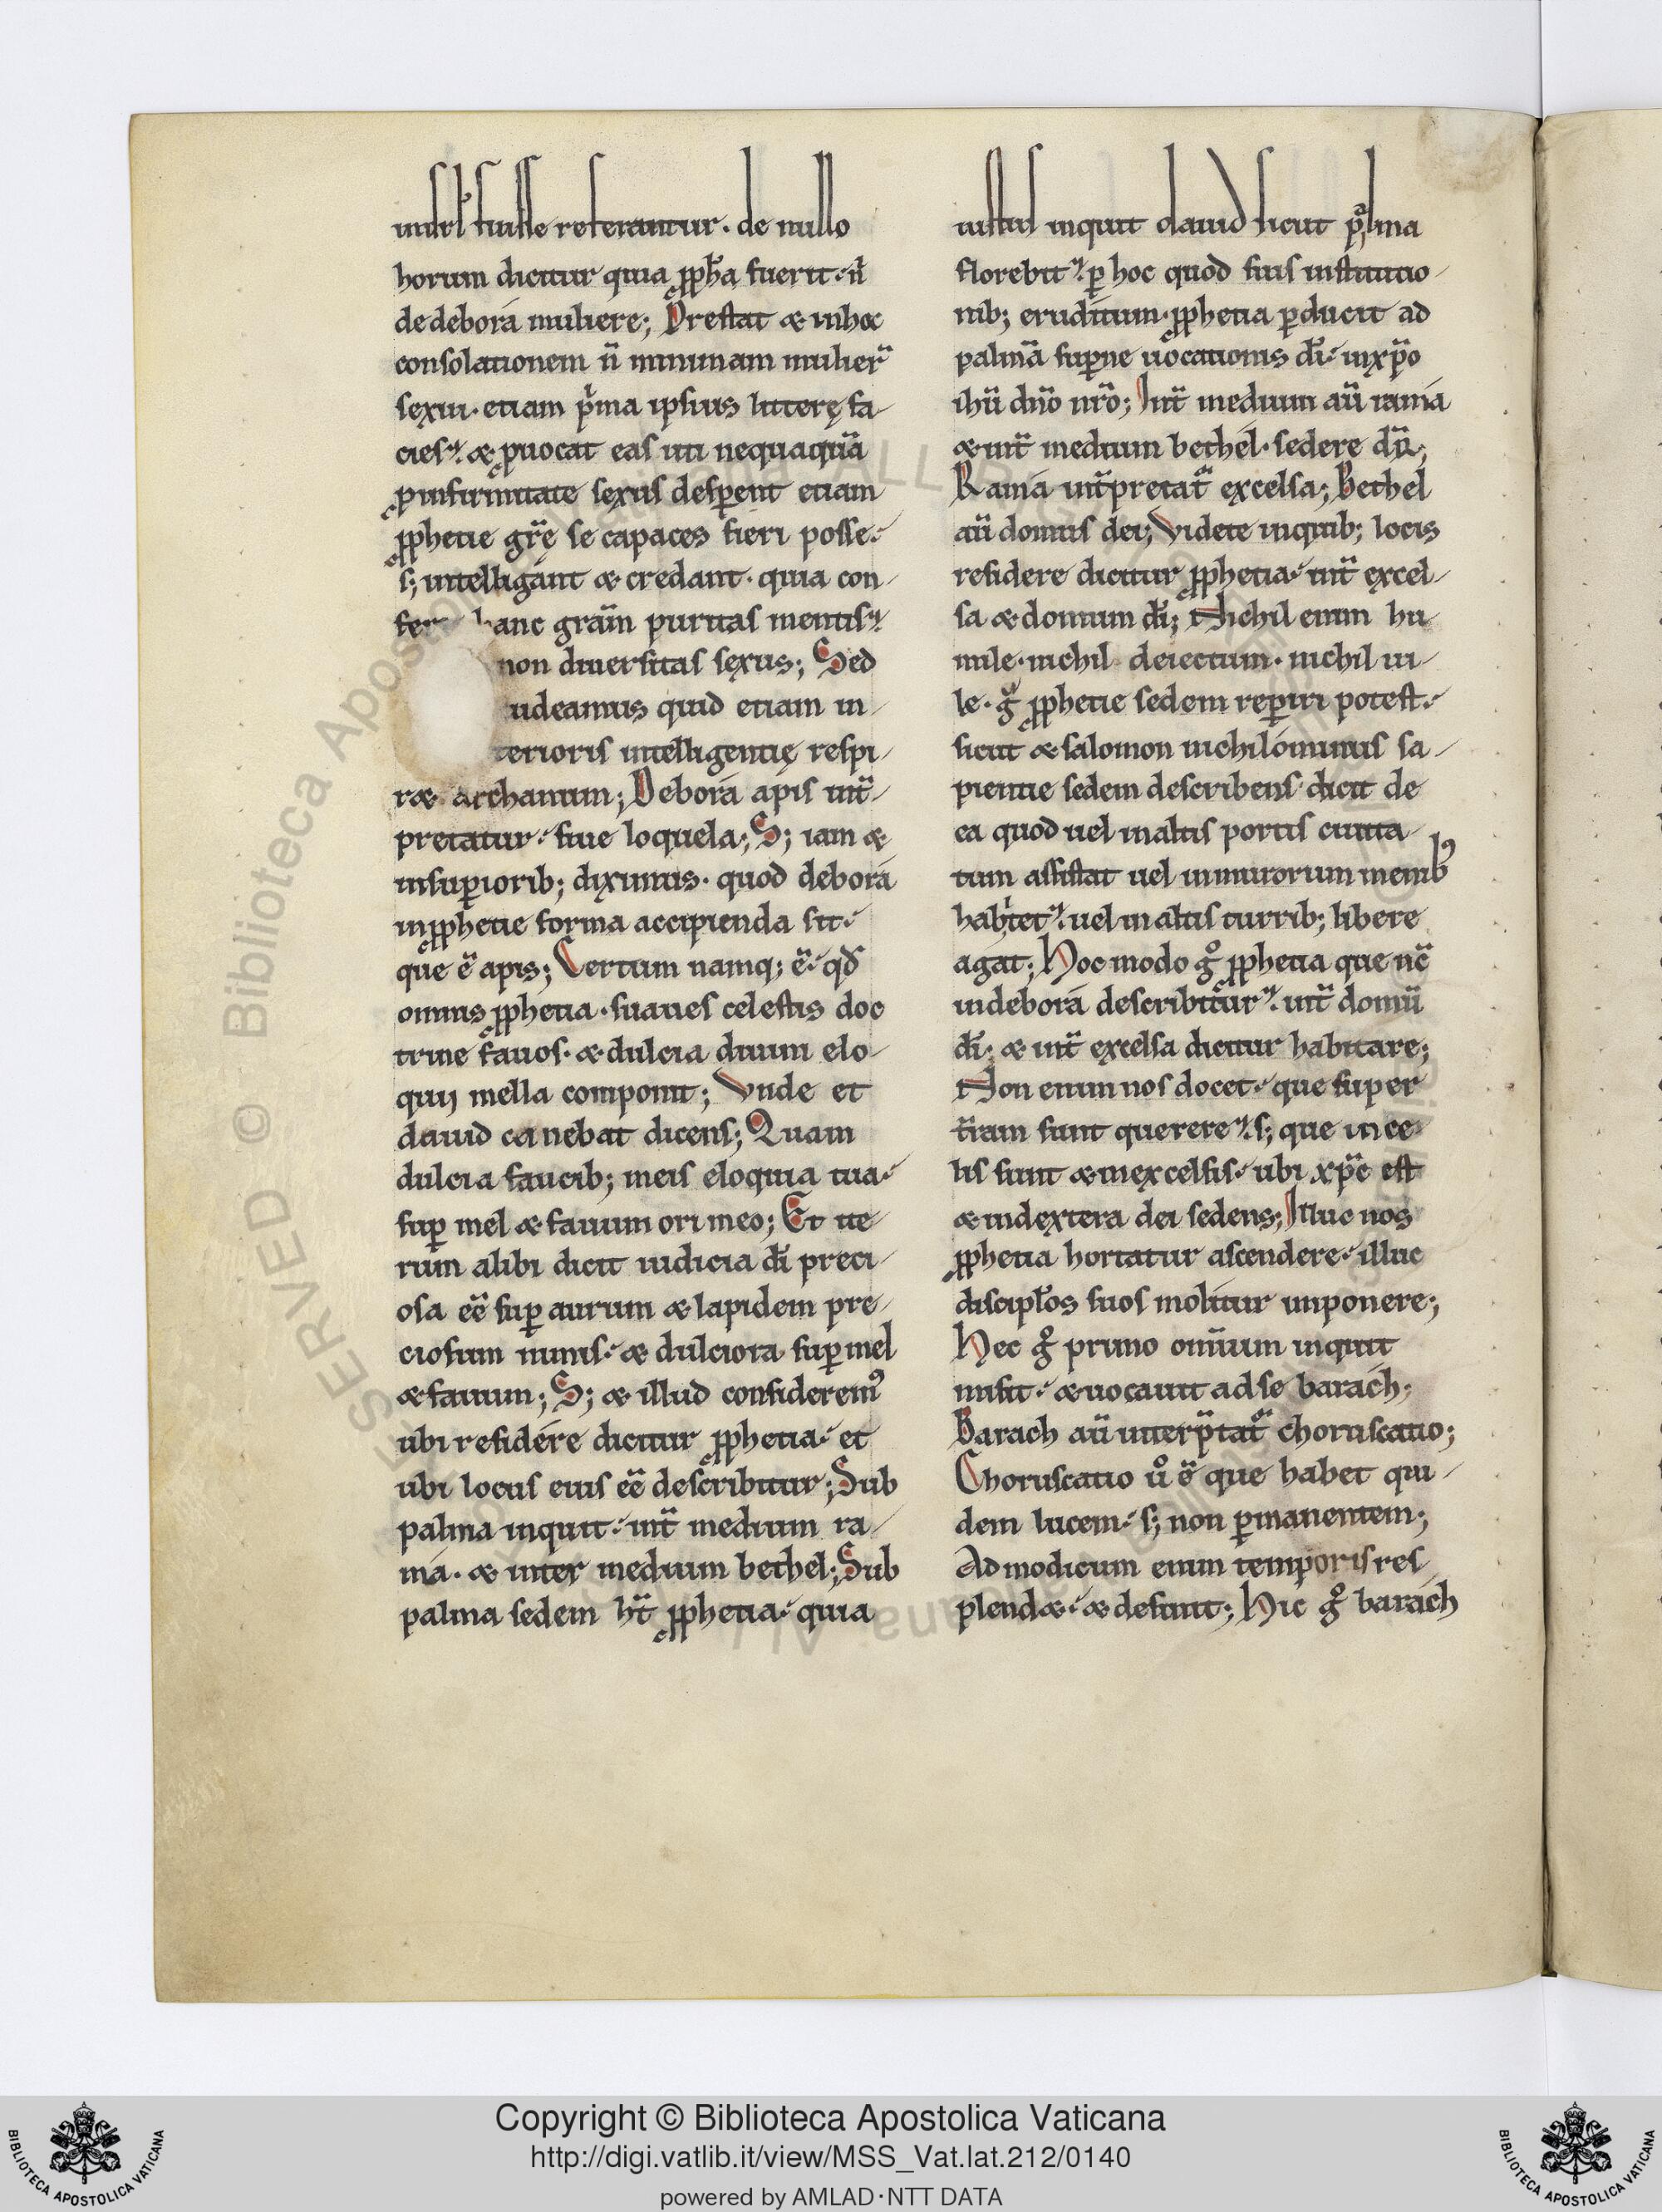 in isrl̄ fuisse referantur. de nullo
horum dicitur quia ꝓph̄a fuerit. n̄
de debora muliere; Prestat & in hoc
consolationem n̄ minimam mulierū
sexui. etiam p̄ma ipsius litterę fa-
cies. & ꝓuocat eas uti nequaquā
ꝓ infirmitate sexus desꝑent etiam
ꝓphetie gr̄ę se capaces fieri posse.
s; intelligant & credant. quia con-
hanc grām puritas mentis.
non diuersitas sexus; Sed
uideamus quid etiam in-
terioris intelligentię respi-
r& archanum; Debora apis int̄-
pretatur. siue loquela; S; iam &
in suꝑiorib; diximus. quod debora
in ꝓphetie forma accipienda sit.
que ē apis; Certum namq; ē. qd̄
omnis ꝓphetia. suaues celestis doc
trine fauos. & dulcia diuini elo-
quij mella componit; Vnde et
dauid canebat dicens; Quam
dulcia faucib; meis eloquia tua.
suꝑ mel & fauum ori meo; Et ite-
rum alibi dicit iudicia dī preci-
osa eē suꝑ aurum & lapidem pre-
ciosum nimis. & dulciora suꝑ mel
& fauum; S; & illud consideremꝰ
ubi residere dicitur ꝓphetia. et
ubi locus eius eē describitur; Sub
palma inquit. int̄ medium ra-
ma. & inter medium bethel; Sub
palma sedem ht̄ ꝓphetia. quia
iustus inquit dauid sicut palma
florebit. ꝑ hoc quod suis institutio-
nib; eruditum. ꝓphetia ꝑducit ad
palmā suꝑne uocationis dī. in xp̄o
ihū dn̄o nr̄o; Int̄ medium aū rama
& int̄ medium bethel. sedere dr̄;
Rama int̄pretat̄ excelsa; Bethel
aū domus dei; Videte in quib; locis
residere dicitur ꝓphetia. int̄ excel-
sa & domum dī; Nichil enim hu-
mile. nichil deiectum. nichil ui-
le. gͦ ꝓphetie sedem reꝑiri potest.
sicut & salomon nichilominus sa-
pientie sedem describens. dicit de
ea quod uel in altis portis ciuita
tum assistat uel in murorum menibꝰ
habitet. uel in altis turrib; libere
agat; Hoc modo gͦ ꝓphetia que nc̄
in debora describitur. int̄ domū
dī. & int̄ excelsa dicitur habitare;
Non enim nos docet. que super
t̄ram sunt querere. s; que in ce
lis sunt & in excelsis. ubi xp̄c est
& in dextera dei sedens; Illuc nos
ꝓphetia hortatur ascendere. illuc
discipl̄os suos molitur imponere;
Hec gͦ primo omnium inquit
misit. & uocauit ad se barach;
Barach aū interp̄tat̄ choruscatio;
Choruscatio uͦ ē que habet qui-
dem lucem. s; non ꝑmanentem;
Ad modicum enim temporis res
plend&. & desinit; Hic gͦ barach
© Biblioteca Apostolica Vaticana
Copyright © Biblioteca Apostolica Vaticana
http://digi.vatlib.it/view/MSS_Vat.lat.212/0140
powered by AMLAD·NTT DATA
BIBLIOTECA APOSTOLICA VATICANA
BIBLIOTECA APOSTOLICA VATICANA